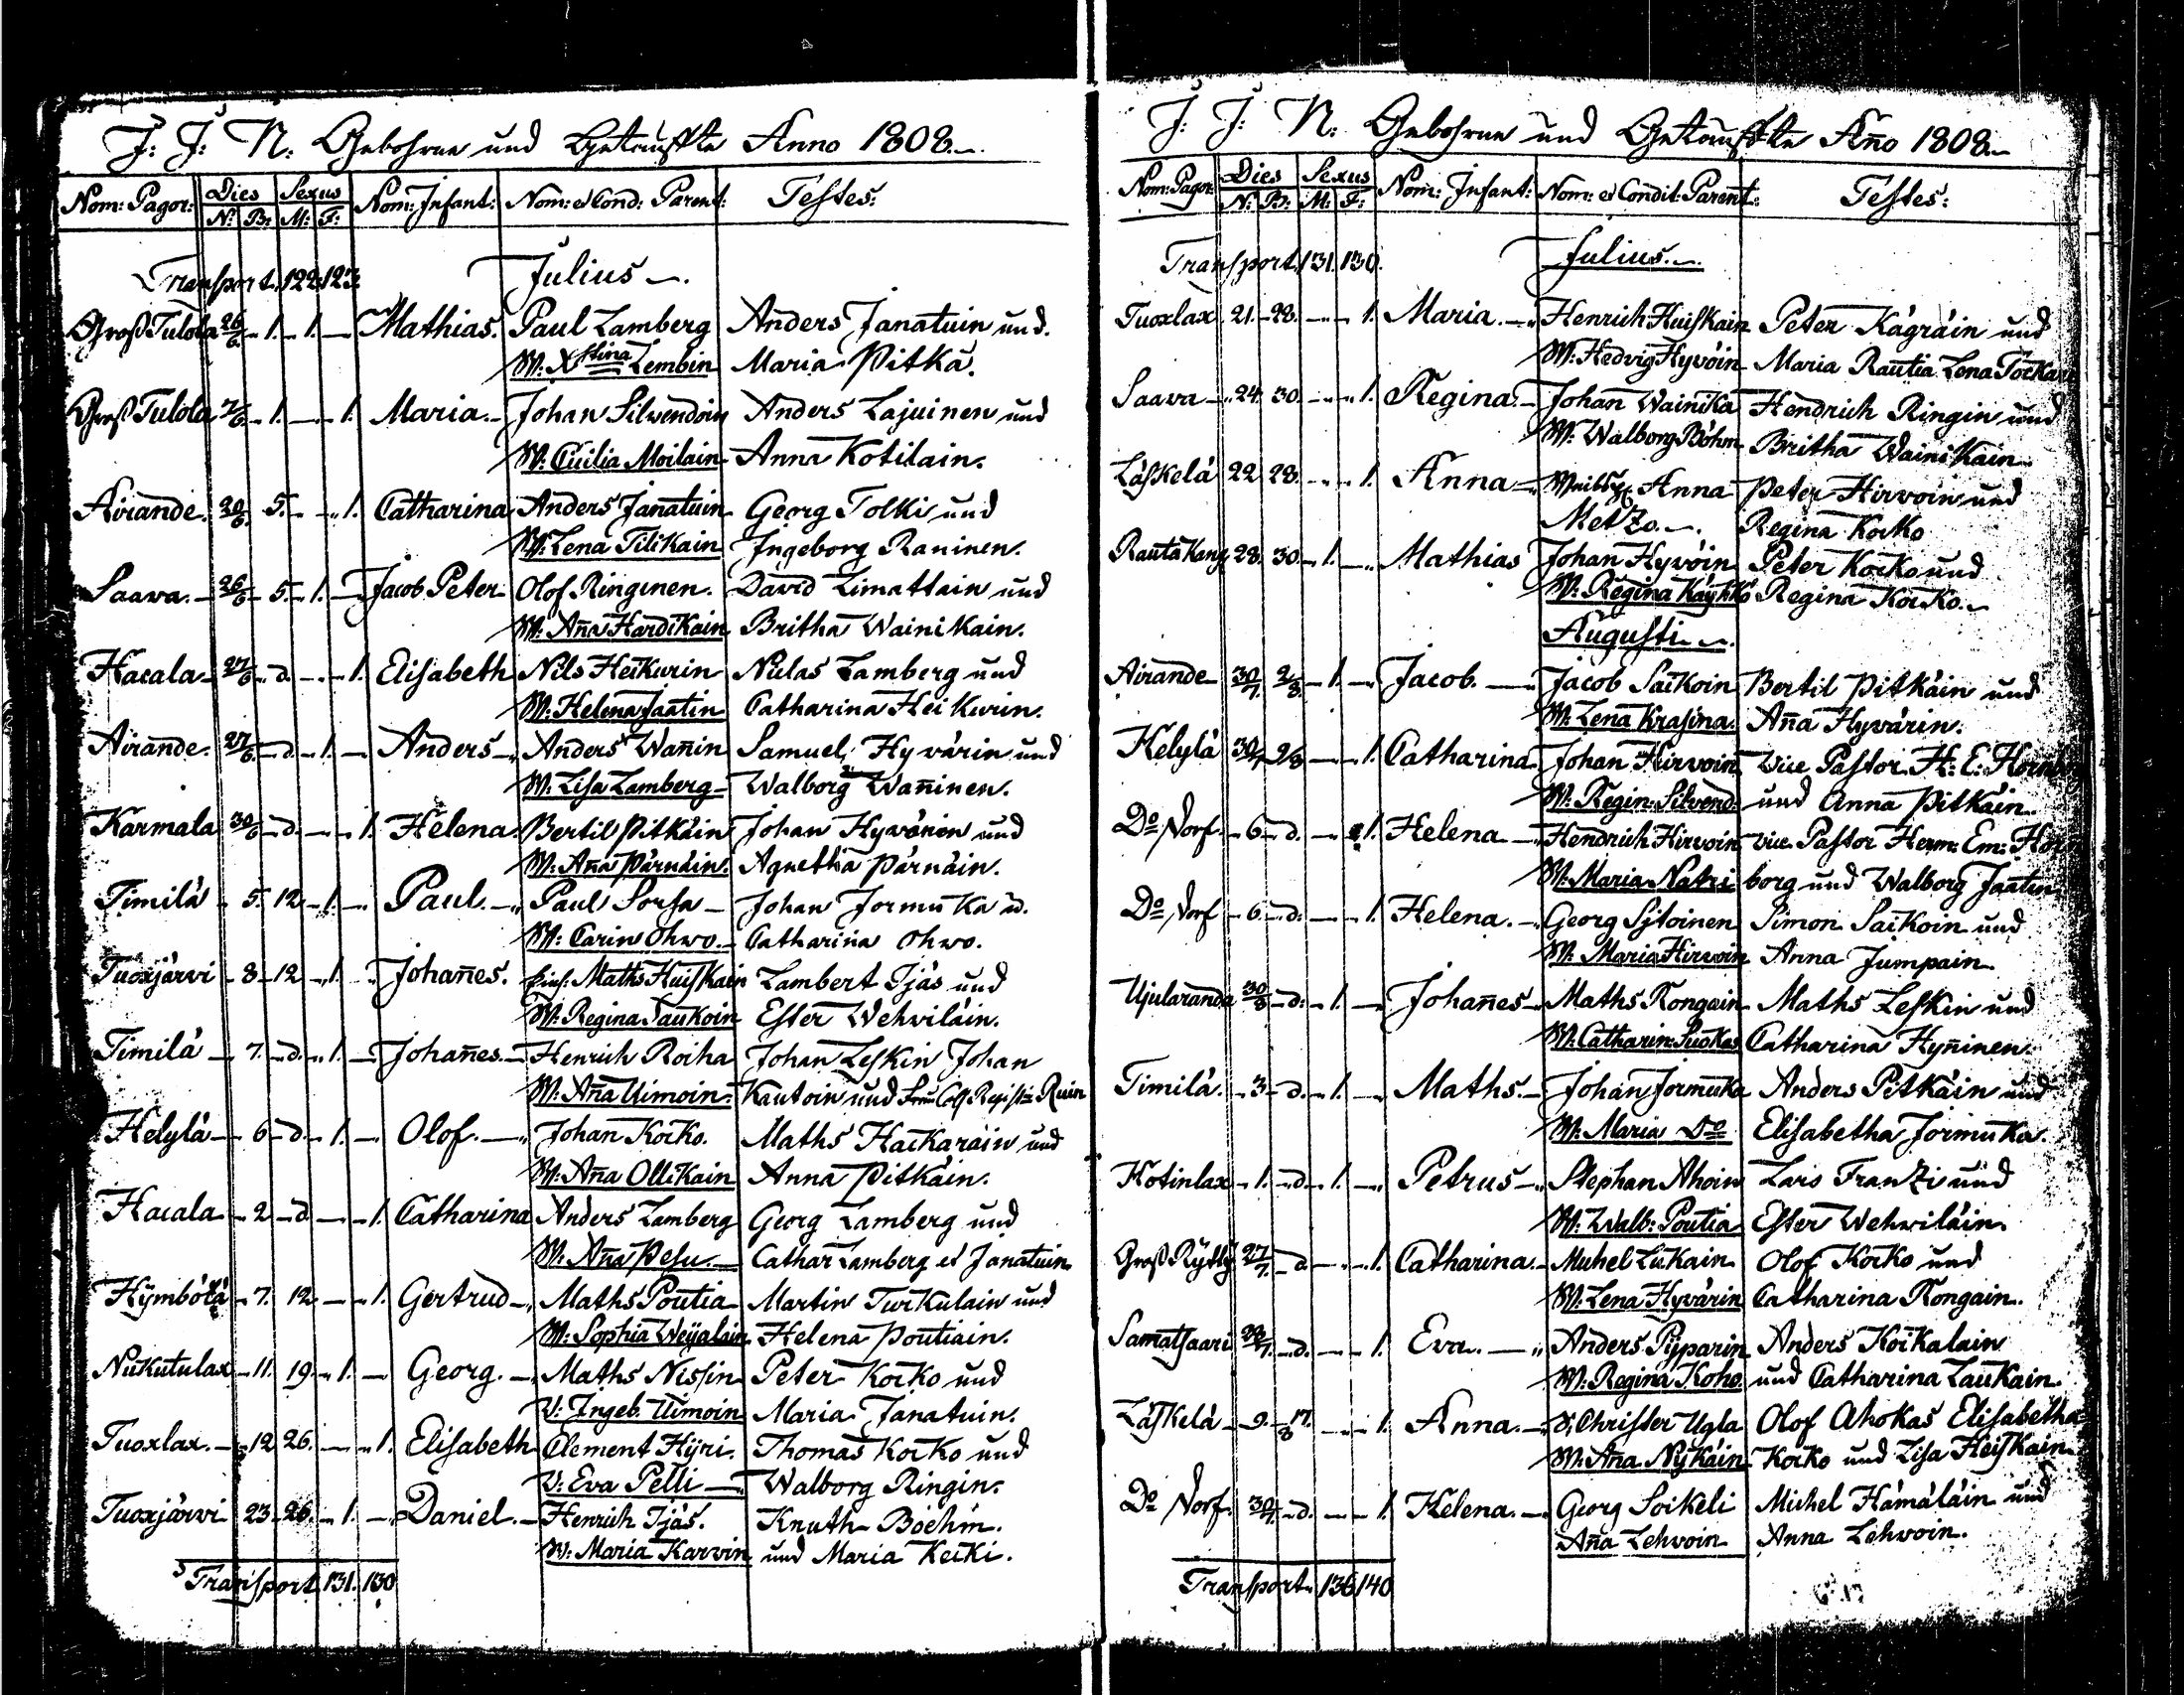 J: J: N: Gebohrne und Getauffte Anno 1808.
Nom: Pagor: Dies Sexus Nom: Infant: Nom: et Cond: Parent: Testes:
N: B: M: F:
Transport. 122. 123. Julius
Groß Tulola 26/6 1. 1. Mathias. Paul Lamberg Anders Janatuin und.
W: Xstina Lembin Maria Pitkä.
Groß Tulola 7/6 1. 1. Maria Johan Silwendoin Anders Lajuinen und
W: Cicilia Moilain Anna Kotilain.
Airande. 20/6 5. 1. Catharina Anders Janatuin Georg Tolki und
W: Lena Tilikain Ingeborg Raninen.
Saava. 26/6 5. 1. Jacob Peter Olof Ringinen. David Limattain und
W: Aña Hardikain Britha Wainikain.
Hacala 27/6 d. 1. Elisabeth Nils Heikurin Niclas Lamberg und
W: Helena Jaatin Catharina Heikurin.
Airande. 27/6 d. 1. Anders Anders Wañin Samuel Hyvärin und
W: Lisa Lamberg Walborg Wañinen.
Karmala 30/6 d. 1. Helena. Bertil Pitkäin Johan Hyvönen und
W: Aña Pärnäin. Agnetha Pärnäin.
Timilä 5. 12. 1. Paul. Paul Sorsa Johan Jormuka u.
W: Carin Ohwo. Catharina Ohwo.
Tuoxjärvi 8. 12. 1. Johañes. Maths Huiskain Lambert Tjäs und
W: Regina Taukoin Ester Wehviläin.
Timilä 7. d. 1. Johañes. Henrich Roiha Johan Leskin Johan
W: Aña Uimoin. Kautoin und
Helylä 6. d. 1. Olof. Johan Kocko. Maths Hackaräin und
W: Aña Ollikain Anna Pitkäin.
Hacala 2 d. 1. Catharina Anders Lamberg Georg Lamberg und
W: Aña Pesu. Cathar Lamberg et Janatuin
Hymbölä 7. 12 1. Gertrud Maths Poutia Martin Turkulain und
W: Sophia Weijalain Helena Poutiain.
Nukutulax 11. 19. 1. Georg. Maths Nissin Peter Kocko und
V: Ingeb. Uimoin Maria Janatuin.
Tuoxlax. 12 26. 1. Elisabeth Clement Hyri. Thomas Kocko und
V: Eva Pelli Walborg Ringin.
Tuoxjärvi 23. 26. 1. Daniel. Henrich Tjäs. Knuth Boehm.
W: Maria Karvin und Maria Kecki.
Transport 131. 130
J: J: N: Gebohrne und Getauffte Año 1808
Nom: Pagor: Dies Sexus Nom: Infant: Nom: et Condit: Parent: Testes:
N: B: M: F:
Transport. 131. 130. Julius.
Tuoxlax 21. 28. 1. Maria. Henrich Huiskain Peter Kägräin und
W: Hedvig Hyvöin Maria Rautia Lena
Saava 24 30. 1. Regina. Johan Wainika Hendrich Ringin und
W: Walborg Böhm Britha Wainikain.
Läskelä 22 28. 1. Anna Anna Peter Hirvoin und
Metzo. Regina Kocko
Rautakang 28. 30. 1. Mathias Johan Hyvöin Peter Kocko und
W: Regina Käyhkö Regina Kocko.
Augusti
Airande 30/7. 2/8 1. Jacob. Jacob Saikoin Bertil Pitkäin und
W: Lena Krasina. Aña Hyvärin.
Kelylä 30/7 2/8 1. Catharina Johan Hirvoin Vice Pastor H: E:
W: Regin: Silvend: und Anna Pitkäin.
Do Dorf. 6. d. 1. Helena Hendrich Hirvoin vice Pastor Herm: Em: Horn
W: Maria Natri borg und Walborg Jaatin
Do Dorf 6. d. 1. Helena. Georg Sjtoinen Simon Saikoin und
W: Maria Hirvoin Anna Jumpain.
Ujularanda 30/8 d: 1. Johañes Maths Rongain Maths Leskin und
W: Catharin: Puokas Catharina Hyñinen.
Timilä. 3 d. 1. Maths. Johan Jormuka Anders Pitkäin und
W: Maria Do Elisabetha Jormuka.
Kotinlax 1. d. 1. Petrus Stephan Ahoin Lars Franzi und
W: Walb: Poutia Ester Wehviläin.
Groß Rytty 27/7. d 1. Catharina. Michel Lukain Olof Kocko und
W: Lena Hyvärin Catharina Rongain.
Samatsaari 28/7. d. 1. Eva Anders Pijparin Anders Kockalain
W: Regina Koho und Catharina Laukain.
Läskelä 9. 17/8 1. Anna. Christer Ugla Olof Ahokas Elisabetha
W: Aña Nykäin Kocko und Lisa Heiskain.
Do Dorf. 30/7. d. 1. Helena. Georg Soikeli Michel Hämäläin und
Aña Lehvoin Anna Lehvoin.
Transport. 136 140